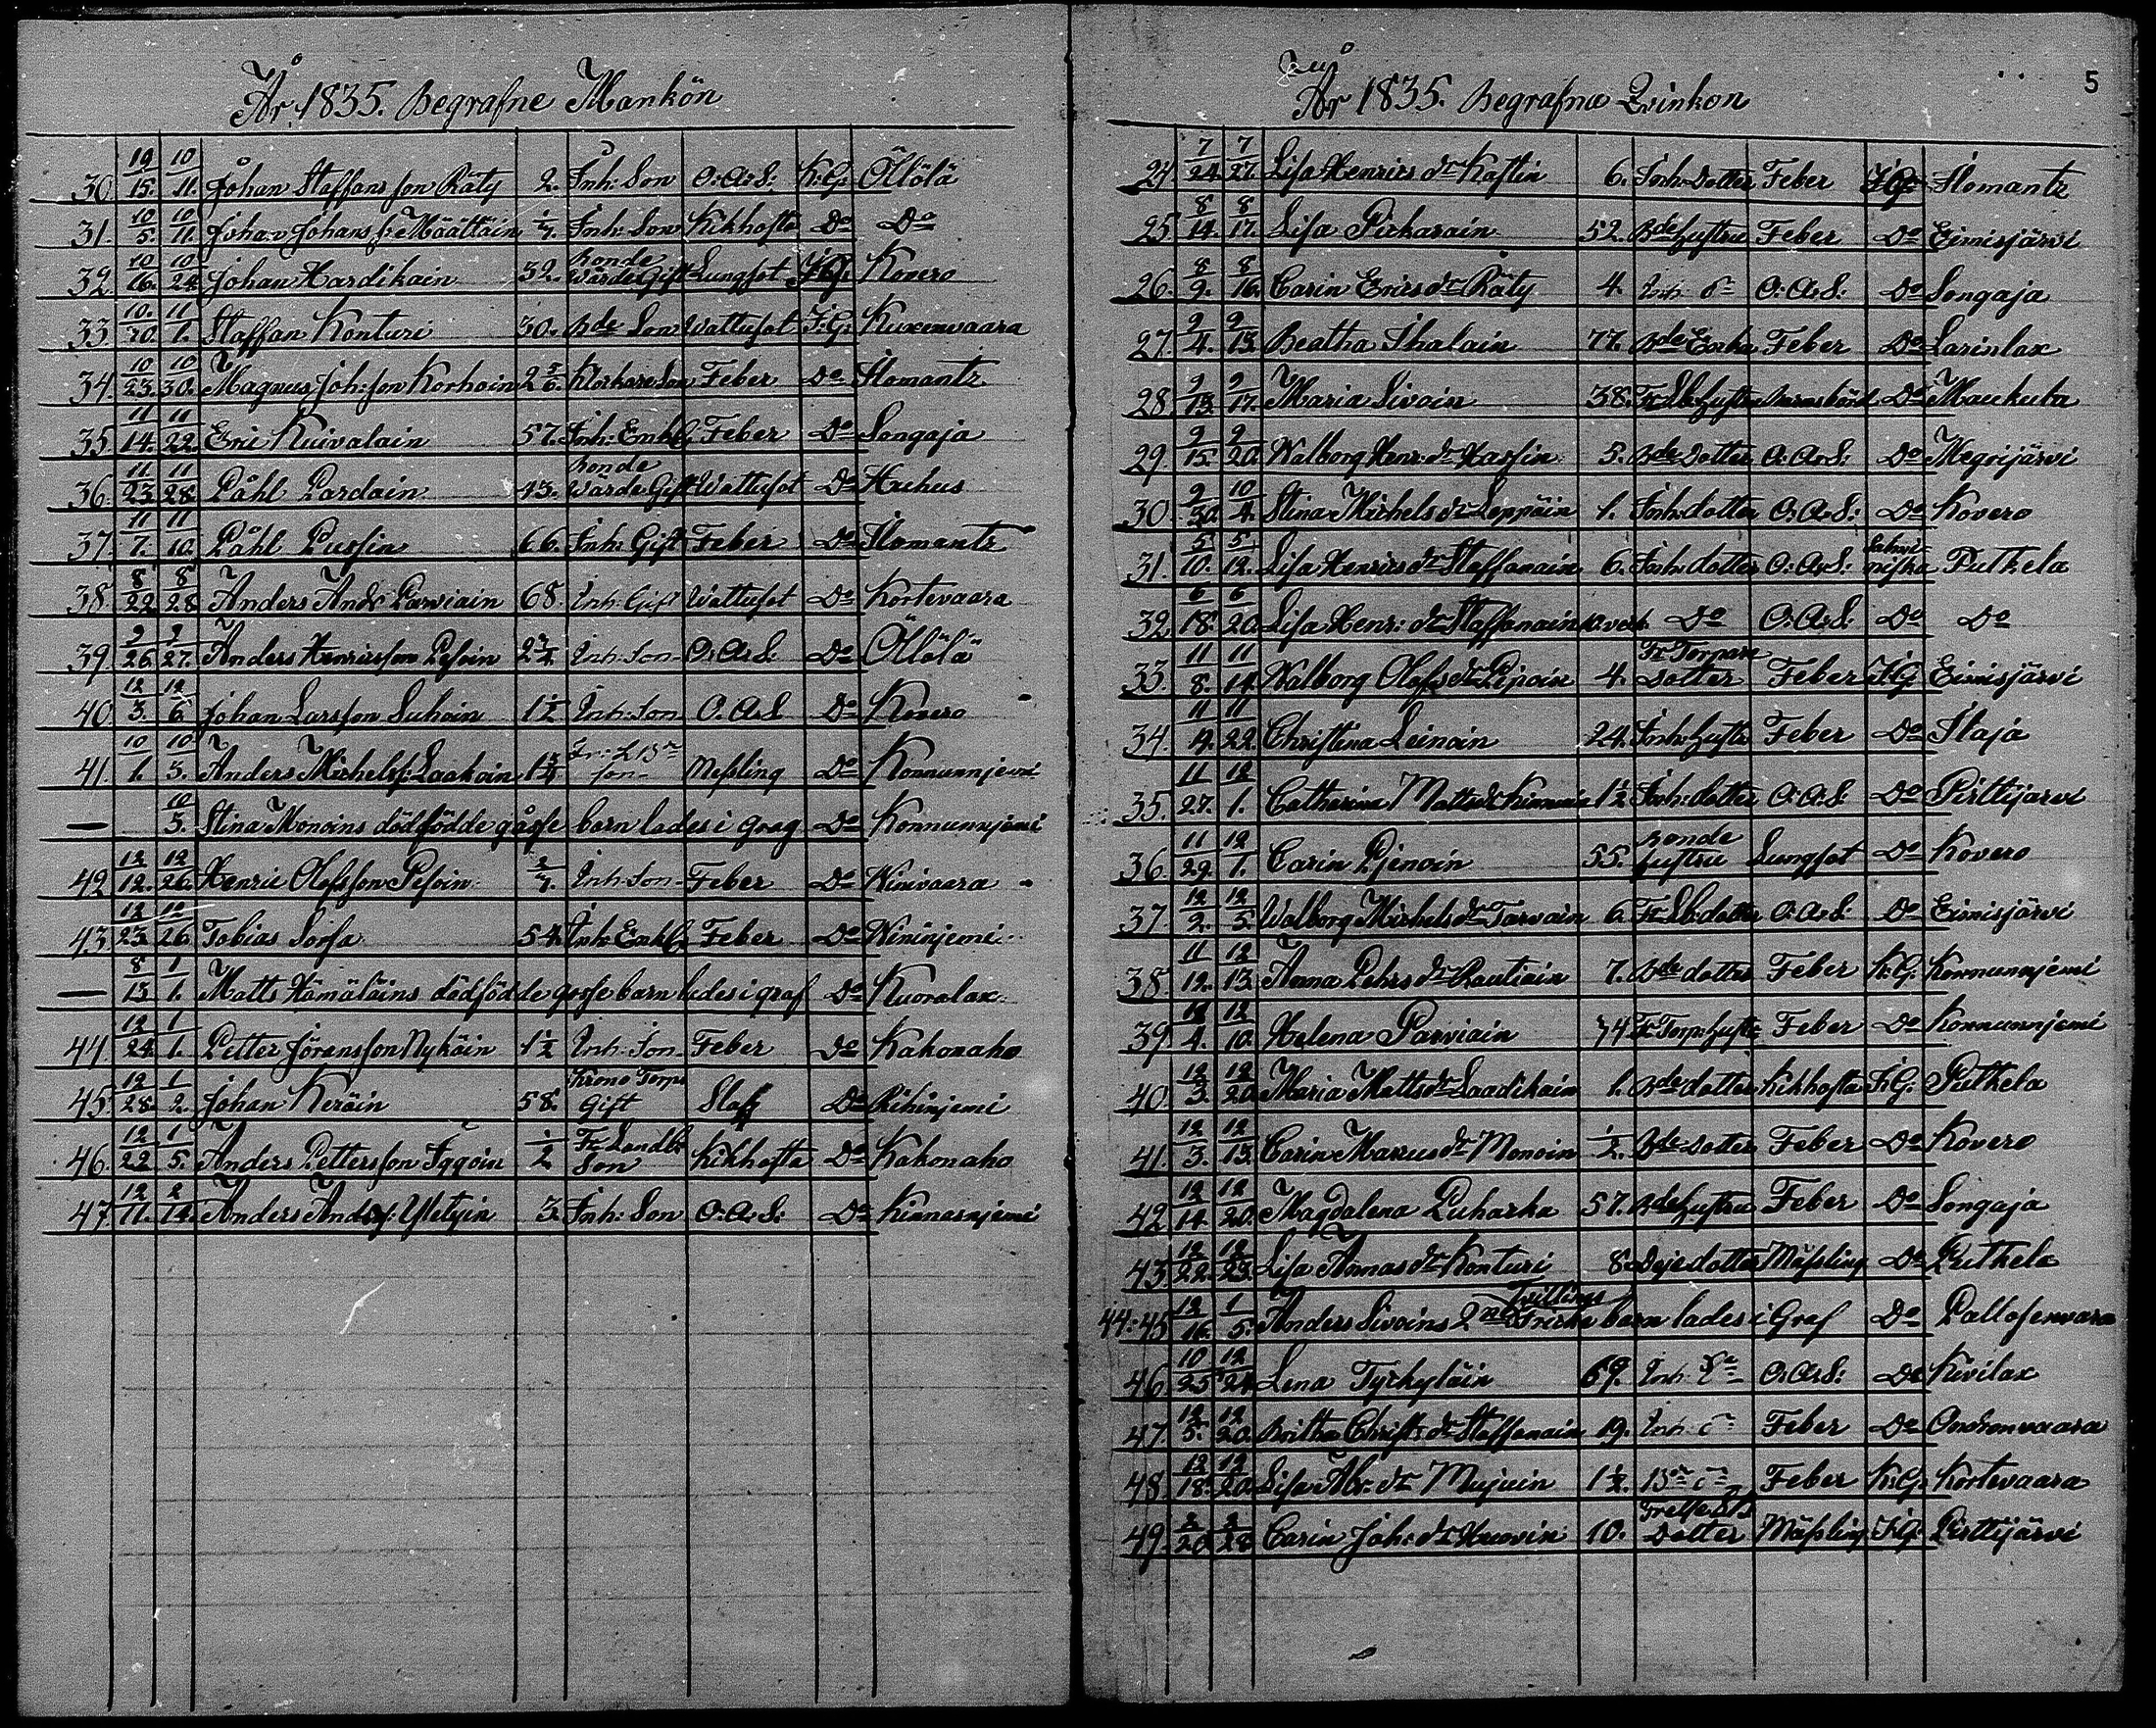 År 1835. Begrafne Mankön
30. 19/15. 10/11. Johan Staffansson Räty 2. Inh: Son O:A:S: K:G: Öllölä
31. 10/5. 10/11. Johan Johans s: Määttäin 1/7. Inh: Son Kikhosta Do Do
32. 10/16. 10/24. Johan Hardikain 32. Bonde Wärde Gift Lungsot I:G: Kovero
33. 10/20. 11/1. Staffan Konturi 30. Bde Son Wattusot I:G: Kuxenvaara
34. 10/23. 10/30. Magnus Joh:son Korhoin 2 Klockare Son Feber Do Ilomantz
35. 11/14. 11/22. Eric Kuivalain 57. Inh: Enkl. Feber Do Songaja
36. 11/23. 11/28. Påhl Pardain 43. Bonde Wärde Gift Wattusot Do Huhus
37. 11/7. 11/10. Påhl Pussin 66. Inh: Gift Feber Do Ilomantz
38. 8/22. 8/28. Anders Andr Parviain 68. Inh: Gift Wattusot Do Kortevaara
39. 9/26. 9/27. Anders Henricsson Pesoin 2 3/4 Inh: Son O:A:S: Do Öllölä
40. 12/3. 12/6. Johan Larsson Suhoin 1 1/2 Inh: Son O:A:S Do Kovero
41. 10/1. 10/3. Anders Michels s: Laakain 1 3/4 son Messling Do Konnunnjemi
— 10/3. Stina Monoins dödfödde gåsse barn lades i grag Do Konnunnjemi
42. 12/12. 12/26. Henric Olofsson Pesoin 2/7. Inh: Son Feber Do Kinivaara
43. 12/23. 12/26 Tobias Sorsa 54. Inh: Enkl. Feber Do Kininjemi
— 8/13 1/1. Matts Hämäläins dödfödde gosse barn lades i graf Do Kuoralax
44. 12/24. 1/1. Petter Jöransson Nykäin 1 1/2 Inh: Son Feber Do Kakonaho
45. 12/28. 1/2. Johan Keräin 58. Krono Torp: Gift Slag Do Rihinjemi
46. 12/22. 1/5. Anders Pettersson Iggoin 1/2 Fr Landb: Son Kikhosta Do Kakonaho
47. 12/11. 2/14. Anders Anders s: Yletyin 3. Inh: Son O:A:S: Do Kinnasnjemi
5
År 1835. Begrafna Qvinkon
24. 7/24. 7/27. Lisa Henrics dr Kastin 6. Inh: dotter Feber I:G: Ilomantz
25. 8/14. 8/17. Lisa Pickarain 52. Bde hustru Feber Do Eimisjärvi
26. 8/9. 8/16. Carin Erics dr Räty 4. Inh: dr O:A:S: Do Songaja
27. 9/4. 9/13. Beatha Ihalain 77. Bde Enka Feber Do Larinlax
28. 9/13. 9/17. Maria Sivoin 38. Fr Lb: hustru Barnsbörd Do Maukuba
29. 9/15. 9/20. Walborg Henr: dr Hassin 5. Bde dotter O:A:S: Do Megrijärvi
30. 9/30. 10/4. Stina Michels dr Leppäin 1. Inh: dotter O:A:S: Do Kovero
31. 5/10. 5/12. Lisa Henrics dr Staffanain 6. Inh: dotter O:A:S: Putkela
32. 6/18. 6/20. Lisa Henr: dr Staffanain 12 veck. Do O:A:S: Do Do
33. 11/8. 11/14. Walborg Olofs dr Pipoin 4. Fr Torpare Dotter Feber I:G: Eimisjärvi
34. 11/14. 11/22. Christina Leinoin 24. Inh: hustr Feber Do Itaja
35. 11/27. 12/1. Catharina Matts dr Kinnunin 1 1/2 Inh: dotter O:A:S: Do Pirttijärvi
36. 11/29. 12/1. Carin Pjenoin 55. Bonde hustru Lungsot Do Kovero
37. 12/2. 12/5. Walborg Michels dr Tarvain 6. Fr Lb: dotter O:A:S: Do Eimisjärvi
38. 11/12. 12/13. Anna Pehrs dr Rautiain 7. Bde dotter Feber K:G: Konnunnjemi
39. 12/4. 12/10. Helena Parviain 74 Fr Torp: hustr Feber Do Konnunnjemi
40. 12/3. 12/20. Maria Matts dr Laadikain 1. Bde dotter Kikhosta I:G: Putkela
41. 12/3. 12/13. Carin Marcus dr Monoin 1/2. Bde dotter Feber Do Kovero
42. 12/14. 12/20. Magdalena Puharka 57. Bde hustru Feber Do Songaja
43. 12/22. 12/25. Lisa Annas dr Konturi 8. Deje dotter Mässling Do Putkela
44:45 12/16. 1/5. Anders Sivoins 2ne Twillings barn lades i Graf Do Pallosenvara
46. 10/25. 12/24. Lena Tyrkyläin 69. Inh: O:A:S: Do Kivilax
47. 12/5. 12/20. Britha Christ: dr Staffanain 19. Inh: dr Feber Do
48. 12/18. 12/20. Lisa Abr: dr Mujuin 1 1/2. Feber K:G: Kortevaara
49. 2/20. 2/28 Carin Joh: dr Huovin 10. Dotter Mässling I:G: Pirttijärvi